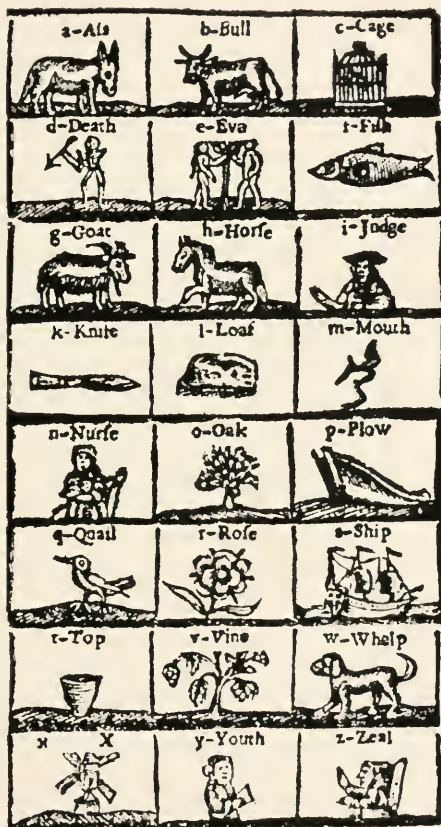 a-Aſs b-Bull c-Cage
d-Death e-Eva f-Fiſh
g-Goat h-Horſe i-Judge
k-Knife l-Loaf m-Mouth
n-Nurſe o-Oak p-Plow
q-Quail r-Roſe s-Ship
t-Top v-Vine w-Whelp
x X y-Youth z-Zeal